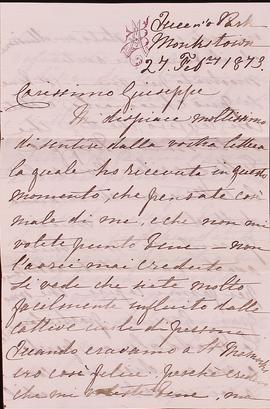 Queen's Park
Monkstown
27. Feb. 1873.
Carissimo Giuseppe
Mi dispiace moltissimo
di sentire dalla vostra lettera
la quale ho ricevuta in questo
momento, che pensate così
male di me, e che non mi
volete punto bene – non
l'avrei mai creduto
Si vede che siete molto
facilmente influito dalle
cattive di persone
Quando eravamo a St
ero così felice perchè
che mi voleste bene, ma